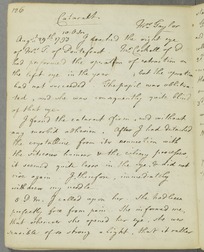 126
Cataract.
Mrs Taylor
Augst 29th 1792. I couched the right eye
of Mrs T. of Pontefract. Mr of
had performed the operation of extraction on
the left eye in the year , but the operation
had not succeeded. The pupil was oblitera-
ted, and she was consequently quite blind
of that eye.
I found the cataract firm, and without
any morbid adhesion. After I had detached
the crystalline from its connection with
the vitreous humour & the ciliary processes
it seemed quite loose in the eye, & did not
rise again. I, therefore, immediately
withdrew my needle.
I called upon her. She had been
perfectly free from pain. She informed me,
that whenever she opened her eye, she was
sensible of so strong a light, that it rather